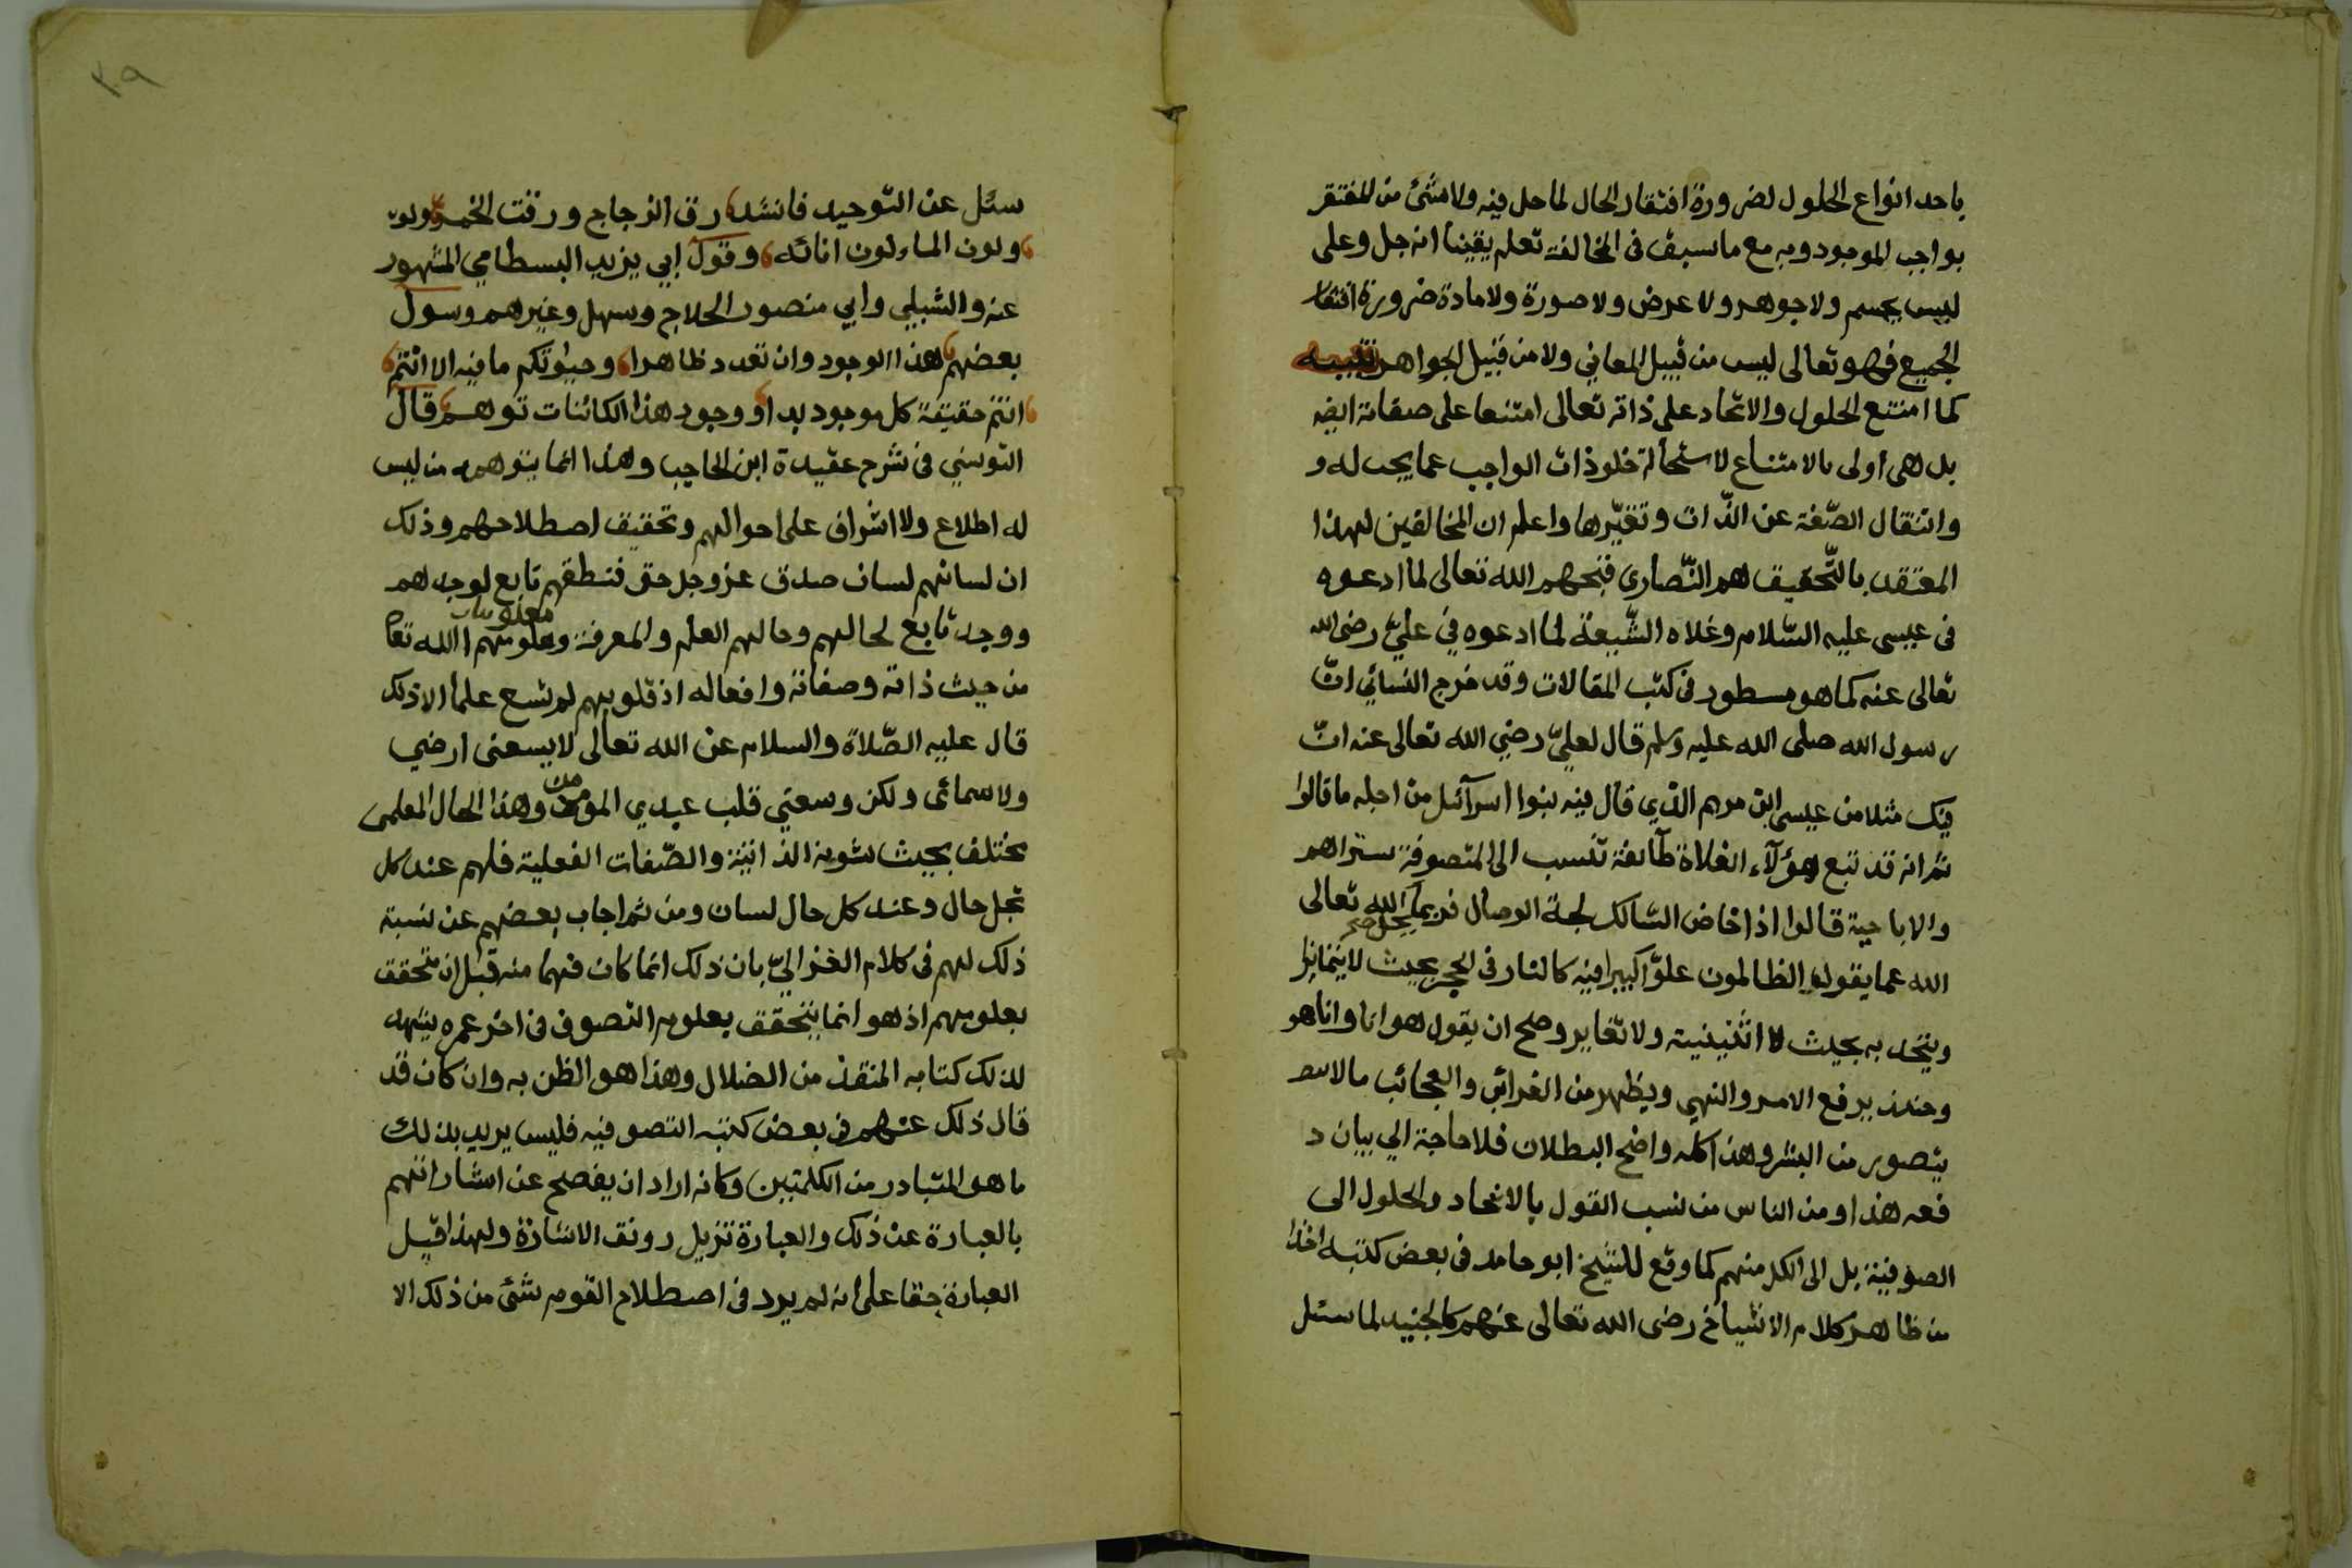 باحد انواع الحلول لضرورة افتقار الحال لما حل فيه ولا شئ من المفتقر
بواجب الموجود وبه مع ما سبق فى المخالفة تعلم يقينا انه جل وعلى
ليس بجسم ولا جوهر ولا عرض ولا صورة ولا مادة ضرورة افتقار
الجميع فهو تعالى ليس من قبيل المعاني ولا من قبيل الجواهر تنبيه
كما امتنع الحلول والاتحاد على ذاته تعالى امتنعا على صفاته ايضا
بل هى اولى بالامتناع لاستحالة خلو ذات الواجب عما يجب له و
وانتقال الصّفة عن الذّات وتغيّرها واعلم ان المخالفين لهذا
المعتقد بالتّحقيق هم النّصارى قبحهم الله تعالى لما ادعوه
فى عيسى عليه السّلام وغلاه الشّيعة لما ادعوه في عليّ رضى الله
تعالى عنه كما هو مسطور فى كتب المقالات وقد خرج النسائي انّ
رسول الله صلى الله عليه وسلم قال لعليّ رضي الله تعالى عنه انّ
فيك مثلا من عيسى ابن مريم الذي قال فيه بنوا اسرآئيل من اجله ما قالوا
ثم انه قد تبع هؤلآء الغلاة طآئفة تنسب الى المتصوفة ستراهم
والاباحية قالوا اذا خاض السّالك لجة الوصال فربما يحل صح الله تعالى
الله عما يقول الظالمون علوّا كبيرا فيه كالنار فى الجمر بحيث لا يتمايزا
ويتحد به بحيث لا اثنينية ولا تغاير وصح ان يقول هو انا وانا هو
وحينئذ يرفع الامر والنهي ويظهر من الغرائب والعجائب ما لا
يتصور من البشر وهذا كله واضح البطلان فلا حاجة الى بيان د
فعه هذا ومن الناس من نسب القول بالاتحاد والحلول الى
الصوفية بل الى الكل منهم كما وقع للشيخ ابو حامد فى بعض كتبه اخذا
من ظاهر كلام الاشياخ رضى الله تعالى عنهم كالجنيد لما سئل
٢٠٩
سئل عن التّوحيد فانشد رق الزجاج ورقت الخمر
ولون الماء لون انائه وقول ابي يزيد البسطامي المشهور
عنه والشبلي وابي منصور الحلاج وسهل وغيرهم وسول
بعضهم هذا الوجود وان تعدد ظاهرا وحيوتكم ما فيه الا انتم
انتم حقيقة كل موجود بدا ووجود هذا الكائنات توهم قال
التونسي فى شرح عقيدة ابن الحاجب وهذا انما يتوهمه من ليس
له اطلاع ولا اشراف على احوالهم وتحقيق اصطلاحهم وذلك
ان لسانهم لسان صدق عز وجل حق فنطقهم تابع لوجدهم
ووجد تابع لحالهم وحالهم العلم والمعرفة ومعلومهم الله تعالى
من حيث ذاته وصفاته وافعاله اذ قلوبهم لم تسع علما الا ذلك
قال عليه الصّلاة والسلام عن الله تعالى لا يسعنى ارضي
ولا سمائى ولكن وسعني قلب عبدي المؤمن وهذا الحال المعلمى
يختلف بحيث شونه الذاتية والصّفات الفعلية فلهم عند كل
تجل حال وعند كل حال لسان ومن ثم اجاب بعضهم عن نسبة
ذلك لهم فى كلام الغزاليّ بان ذلك انما كان فهما منه قبل ان يتحقق
بعلومهم اذ هو انما يتحقق بعلوم التصوف فى اخر عمره يشهد
لذلك كتابه المنقذ من الضلال وهذا هو الظن به وان كان قد
قال ذلك عنهم فى بعض كتبه التصوفيه فليس يريد بذلك
ما هو المتبادر من الكلمتين وكانه اراد ان يفصح عن اشاراتهم
بالعبارة عن ذلك والعبارة تزيل رونق الاشارة ولهذا قيل
العبارة جفا على انه لم يرد فى اصطلاح القوم شئ من ذلك الا